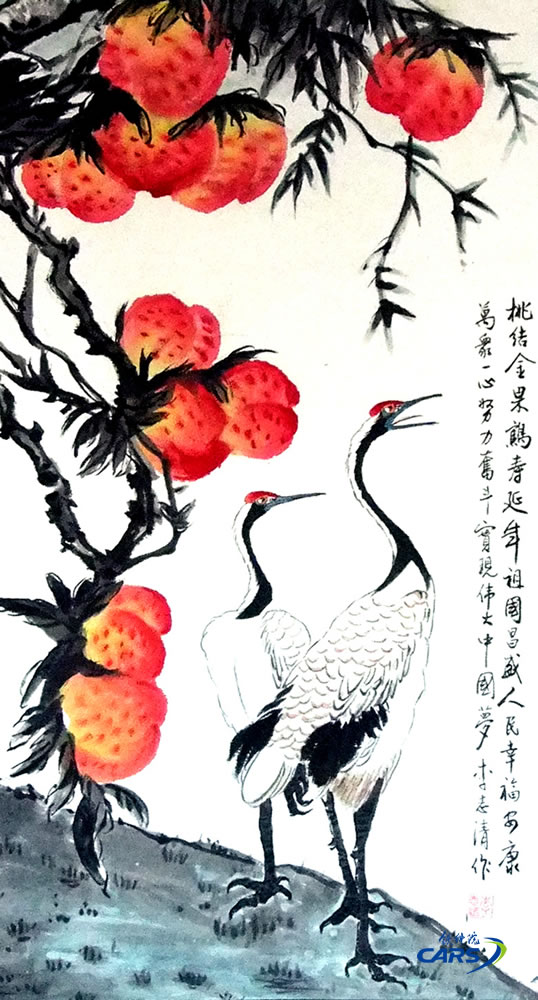 桃结金果鹤寿延年祖國昌盛人民幸福安康
萬眾一心努力奮斗實現伟大中國夢李志清作
CARS